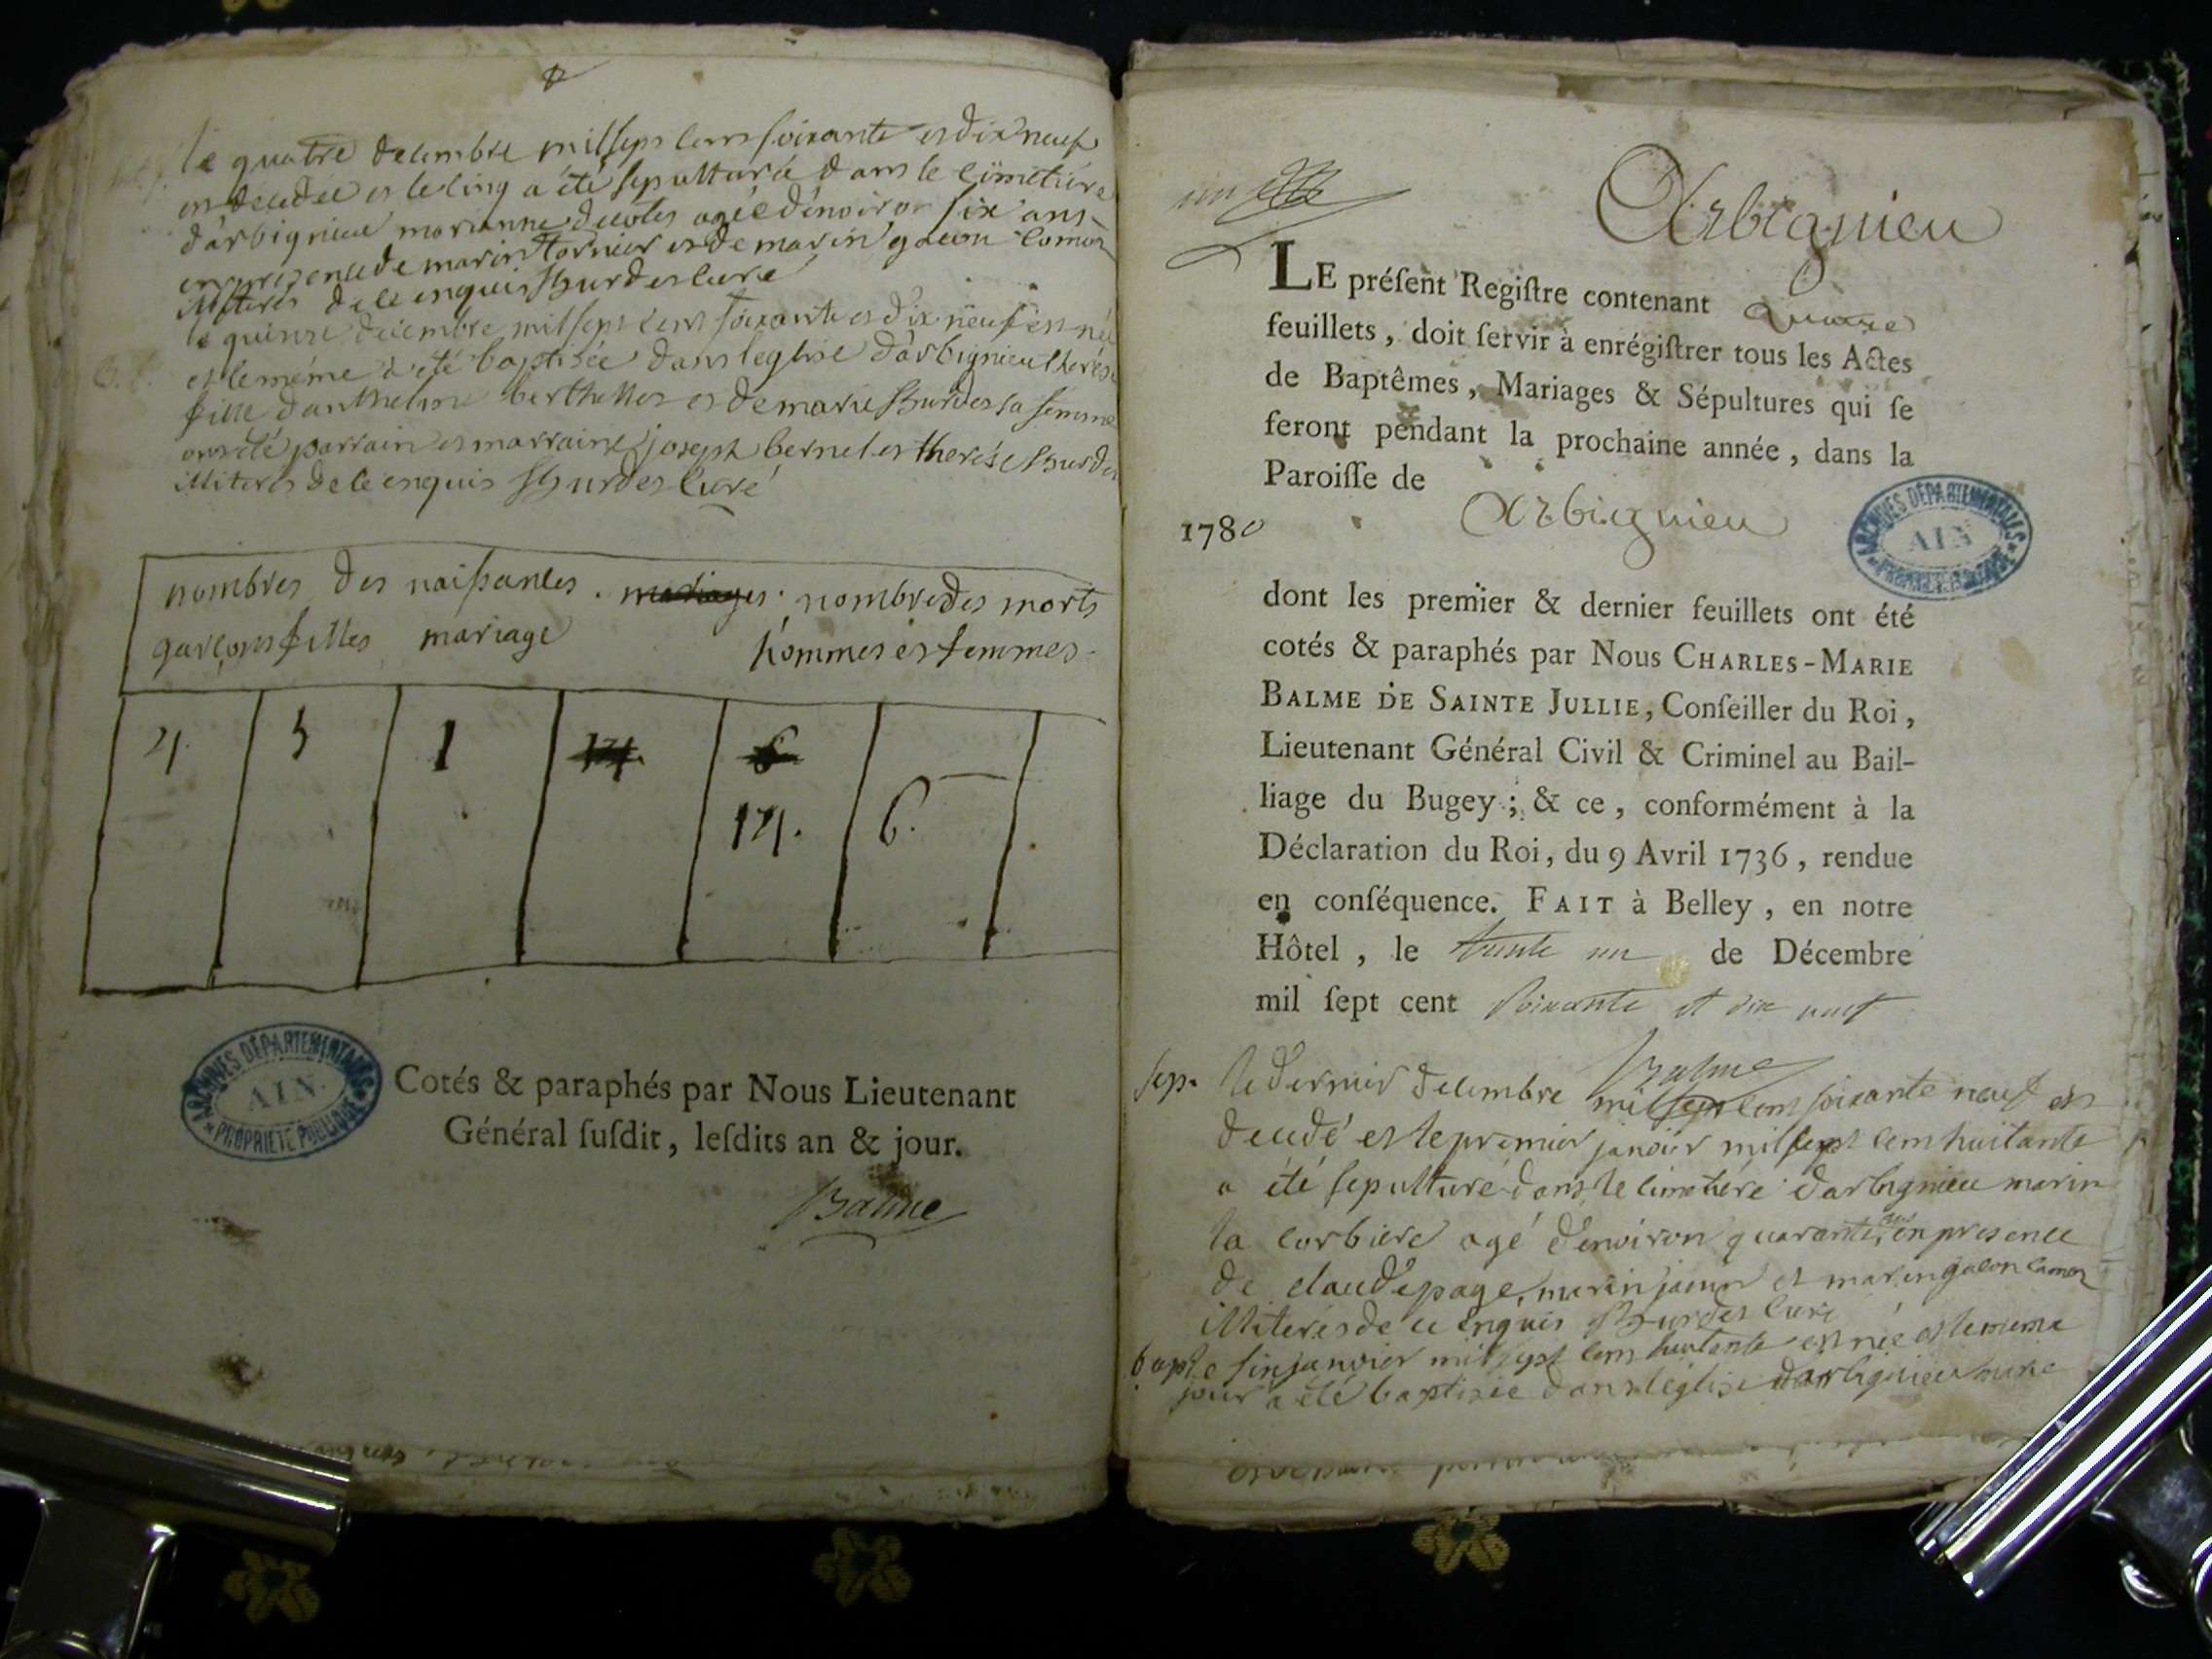 le quatre decembre mil sept cent soixante et dix neuf
est decedée et le cinq a été sepulturé dans le cimetiére
d'arbignieu marianne decoles agée d'environ six ans
en presence de marin tornier et de marin gacon
illiterés de ce enquis Burdet curé
le quinze decembre mil sept cent soixante et dix neuf est née
et le méme a été baptisée dans l'eglise d'arbignieu therése
fille d'anthelme berthellet et de marie Burdet sa femme
ont été parrain et marraine joseph bernel et therése Burdet
illiterés de ce enquis Burdet curé
nombres des naissances . mariages . nombre des morts
garçons filles mariage hommes et femmes
4. 5 1 14. 6
14. 6.
Cotés & paraphés par Nous Lieutenant
Général susdit, lesdits an & jour.
Balme
ARCHIVES DÉPARTEMENTALES
AIN
PROPRIÉTÉ PUBLIQUE
un
Arbignieu
LE présent Registre contenant
feuillets, doit servir à enrégistrer tous les Actes
de Baptêmes, Mariages & Sépultures qui se
feront pendant la prochaine année, dans la
Paroisse de
1780 Arbignieu
ARCHIVES DÉPARTEMENTALES
AIN
PROPRIÉTÉ PUBLIQUE
dont les premier & dernier feuillets ont été
cotés & paraphés par Nous CHARLES-MARIE
BALME DE SAINTE JULLIE, Conseiller du Roi,
Lieutenant Général Civil & Criminel au Bail-
liage du Bugey; & ce, conformément à la
Déclaration du Roi, du 9 Avril 1736, rendue
en conséquence. FAIT à Belley, en notre
Hôtel, le trente un de Décembre
mil sept cent soixante et dix neuf
Balme
sep. le dernier decembre mil sept cent soixante neuf est
decedé et le premier janvier mil sept cent huitante
a été sepulturé dans le cimetiére d'arbignieu marin
la corbiere agé d'environ quarante ans en presence
de claude page, marin janin et marin gacon
illiterés de ce enquis Burdet curé
bapt. le cinq janvier mil sept cent huitante est née et le meme
jour a été baptisée dans l'eglise d'arbignieu